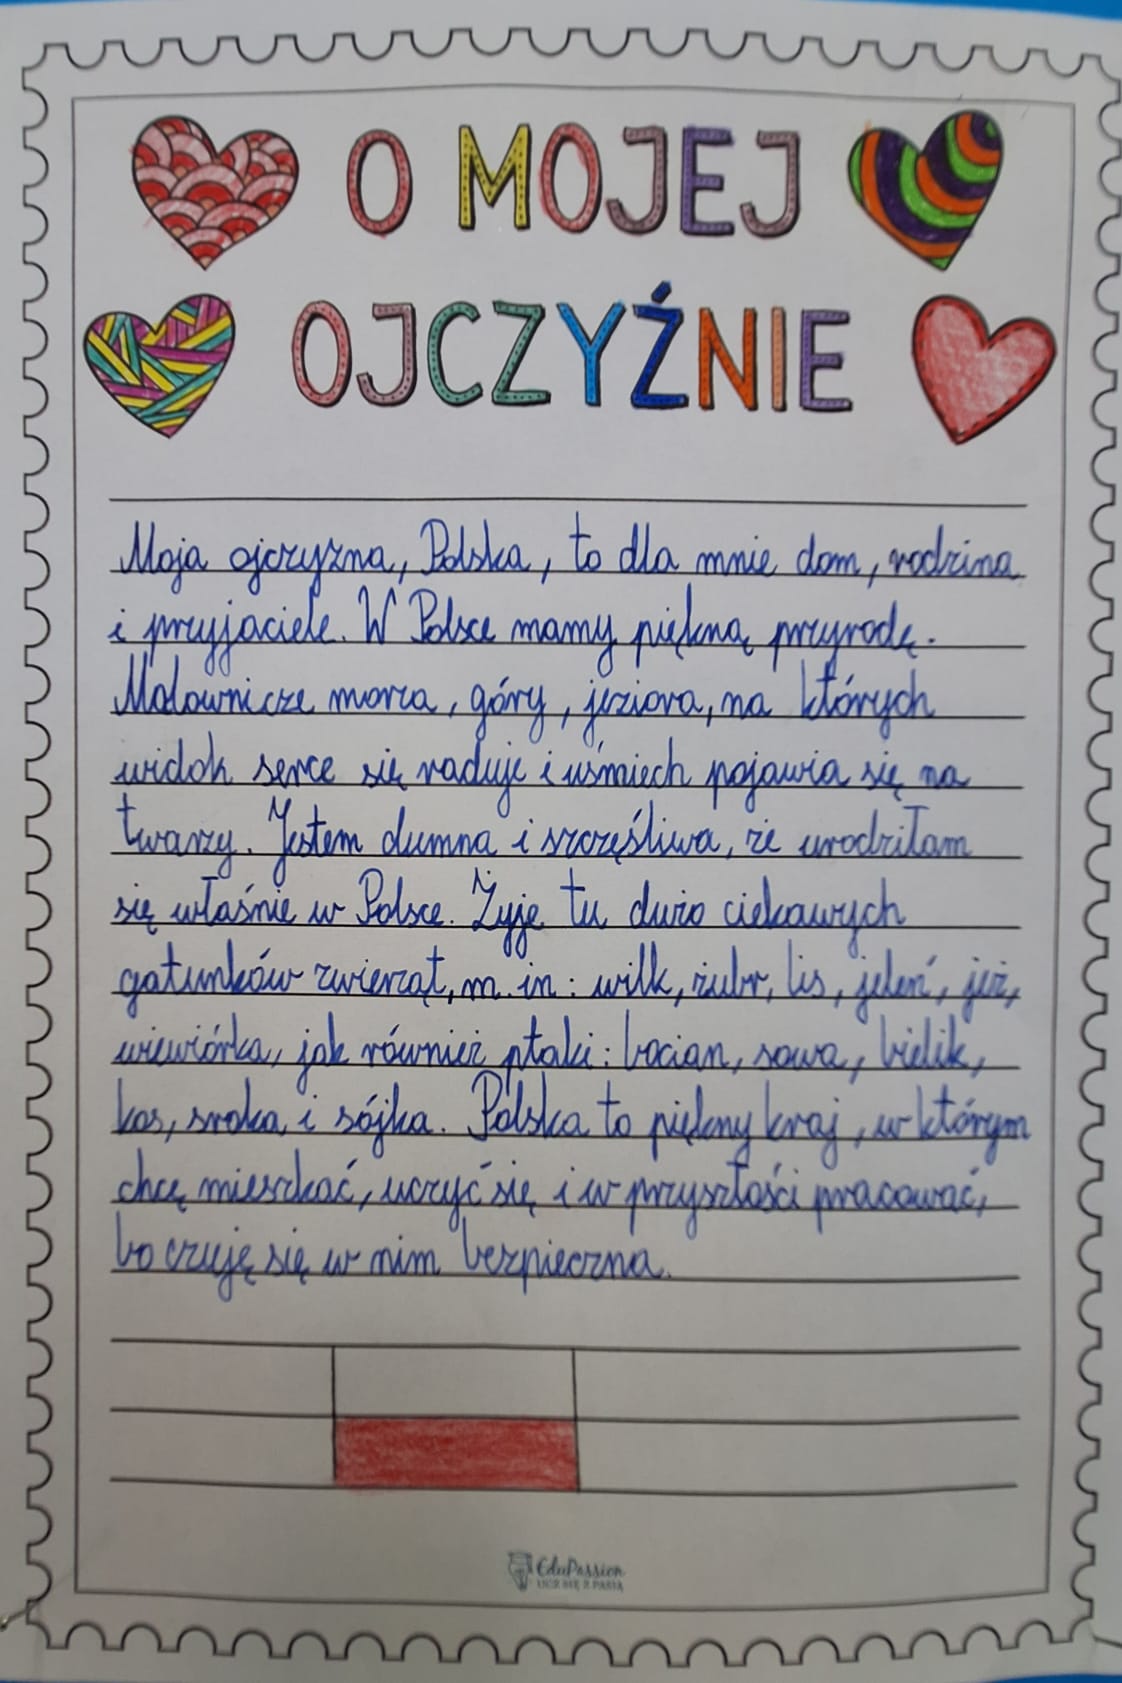 O MOJEJ
OJCZYŹNIE
Moja ojczyzna, Polska, to dla mnie dom, rodzina
i przyjaciele. W Polsce mamy piękną przyrodę.
Malownicze morza, góry, jeziora, na których
widok serce się raduje i uśmiech pojawia się na
twarzy. Jestem dumna i szczęśliwa, że urodziłam
się właśnie w Polsce. Żyje tu dużo ciekawych
gatunków zwierząt, m. in: wilk, żubr, lis, jeleń, jeż,
wiewiórka, jak również ptaki: bocian, sowa, bielik,
kos, sroka i sójka. Polska to piękny kraj, w którym
chcę mieszkać, uczyć się i w przyszłości pracować,
bo czuję się w nim bezpieczna.
EduPassion
UCZ SIĘ Z PASJĄ